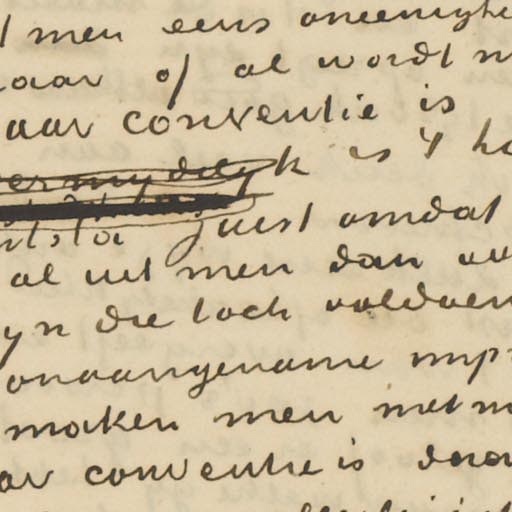 men eens oneenigh
aar of al wordt m
aar conventie is
vermydelyk is 't ho
juist omdat
al uit men dan
yn die toch voldoen
onaangename imp
maken men met
ar conventie is